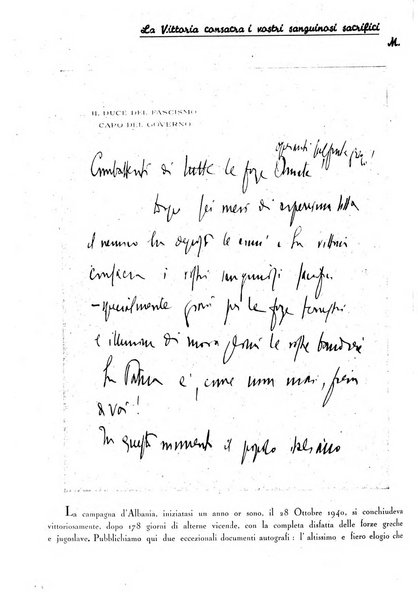 La Vittoria consacra i vostri sanguinosi sacrifici
M.
IL DUCE DEL FASCISMO
CAPO DEL GOVERNO
operanti sul fronte greco!
Combattenti di tutte le forze Armate,
dopo sei mesi di asperrima lotta
il nemico ha deposto le armi e la vittoria
consacra i vostri sanguinosi sacrifici
- specialmente gravi per le forze terrestri
e illumina di nuova gloria le vostre bandiere
La Patria è, come non mai, fiera
di voi!
In questo momento il popolo italiano
La campagna d'Albania, iniziatasi un anno or sono, il 28 Ottobre 1940, si conchiudeva
vittoriosamente, dopo 178 giorni di alterne vicende, con la completa disfatta delle forze greche
e jugoslave. Pubblichiamo qui due eccezionali documenti autografi : l'altissimo e fiero elogio che